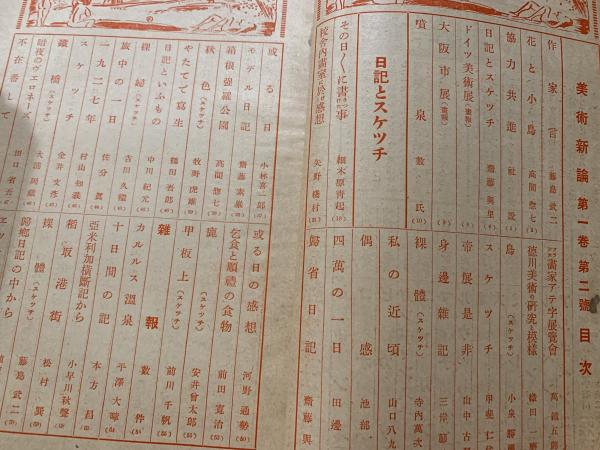 美術新論 第一卷 第二號 目次
作家言 藤島武二
花と小鳥 高間惣七
協力共進 社說
日記とスケッチ 齋藤與里
ドイツ美術展(畫報)
大阪市展(畫報)
噴泉 數氏
日記とスケッチ
その日〳〵に書く事 細木原青起
校舍內畫室に於る感想
畫家アテ字展覽會 萬鐵五郎
德川美術の研究と模樣 織田一磨
鳥(スケッチ) 小泉勝爾
スケッチ 甲斐仁代
帝展是非
身邊雜記
裸體(スケッチ) 寺內萬次
私の近頃 山口八九
偶感 池部
四萬の一日 田邊
歸省日記 齋藤與
或る日 小林喜一郎
モデル日記 齋藤素巖
箱根强羅公園 高間惣七
秋色(スケッチ) 牧野虎雄
やたてで寫生
日記といふもの 鶴田吾郎
裸婦(スケッチ) 中川紀元
旅中の一日 吉田久繼
一九二七年 佐分眞
スケッチ 村山知義
鐵橋(スケッチ)
暗夜のヴエロネーズ
不在番して 田口省吾
或る日の感想 河野通勢
乞食と順禮の食物 前田寬治
鹿(スケッチ) 安井曾太郎
甲板上(スケッチ) 前川千帆
雜報 數件
カルルス溫泉 平澤大暲
十日間の記 本方昌
亞米利加橫斷記から 小早川秋聲
稻取港街 松村巽
裸體(スケッチ) 藤島武二
歸鄕日記の中から